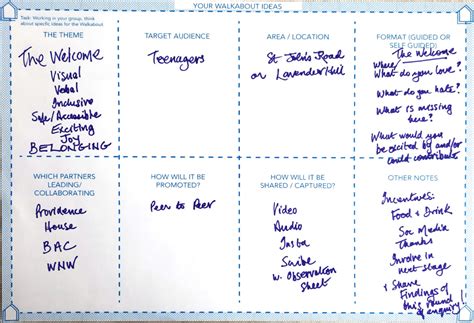 YOUR WALKABOUT IDEAS
Task: Working in your group, think
about specific ideas for the Walkabout.
THE THEME
The Welcome
Visual
Verbal
Inclusive
Safe/Accessible
Exciting
Joy
BELONGING
TARGET AUDIENCE
Teenagers
AREA / LOCATION
St John's Road
or Lavender Hill
FORMAT (GUIDED OR
SELF GUIDED)
The Welcome
What do you love?
What do you hate?
What is missing
here?
What would you
be excited by and/or
could contribute
WHICH PARTNERS
LEADING/
COLLABORATING
Providence
House
BAC
WNW
HOW WILL IT BE
PROMOTED?
Peer to Peer
HOW WILL IT BE
SHARED / CAPTURED?
Video
Audio
Insta
Scribe
w. Observation
Sheet
OTHER NOTES
Incentives:
Food & Drink
Soc Media
Thanks
Involve in
next stage
& Share
Findings of
this round
of enquiry!